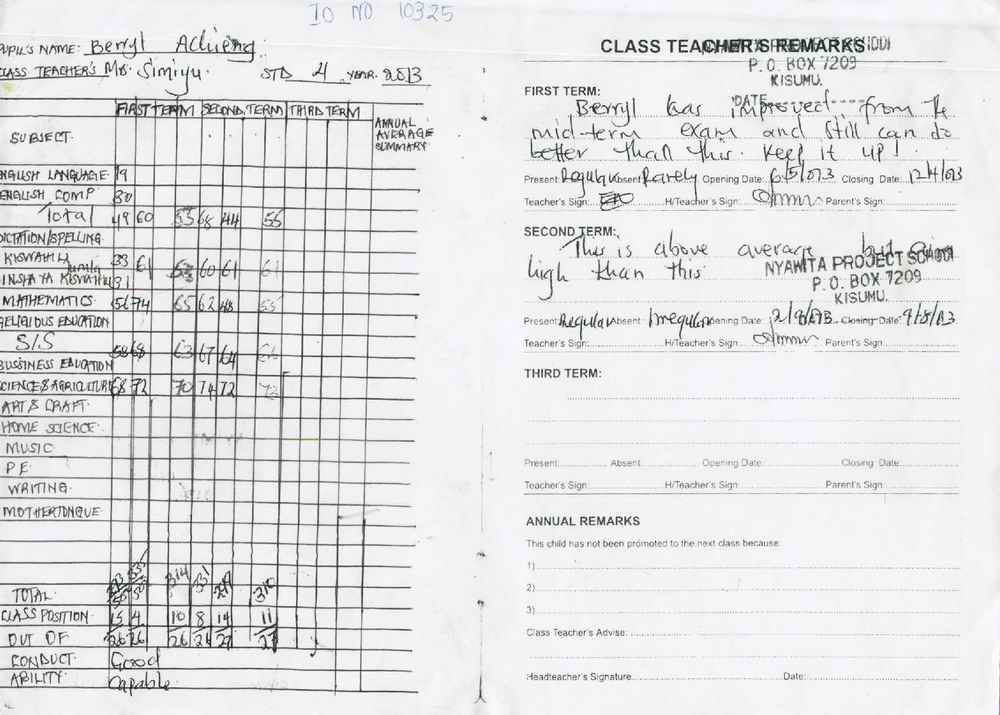 IO NO 10325
PUPIL'S NAME: Berryl Achieng
CLASS TEACHER'S Mr. Simiyu. STD 4 YEAR. 2013
SUBJECT FIRST TERM SECOND TERM THIRD TERM ANNUAL AVERAGE SUMMARY
ENGLISH LANGUAGE 19
ENGLISH COMP 30
Total 49 60 55 68 44 56
DICTATION/SPELLING
KISWAHILI 33 61 60 61 61
INSHA YA KISWAHILI 31
MATHEMATICS 56 74 65 62 48 55
RELIGIOUS EDUCATION
S/S 68 63 67 64
BUSSINESS EDUCATION
SCIENCE & AGRICULTURE 68 72 70 74 72 73
ART & CRAFT
HOME SCIENCE
MUSIC
PE
WRITING
MOTHERTONGUE
TOTAL 314 331 310
CLASS POSITION 15 4 10 8 14 11
OUT OF 26 26 26 27 27
CONDUCT Good
ABILITY Capable
CLASS TEACHER'S REMARKS
P. O. BOX 7209
KISUMU.
DATE
FIRST TERM:
Berryl has improved from the
mid-term exam and still can do
better than this. Keep it up!
Present: Regular Absent Rarely Opening Date: Closing Date: 12/4/013
Teacher's Sign: H/Teacher's Sign: Parent's Sign:
SECOND TERM:
This is above average but aim
high than this
NYAWITA PROJECT SCHOOL
P. O. BOX 7209
KISUMU.
Present: Regular Absent Irregular Opening Date: Closing Date:
Teacher's Sign: H/Teacher's Sign: Parent's Sign:
THIRD TERM:
Present: Absent: Opening Date: Closing Date:
Teacher's Sign: H/Teacher's Sign: Parent's Sign:
ANNUAL REMARKS
This child has not been promoted to the next class because:
1)
2)
3)
Class Teacher's Advise:
Headteacher's Signature Date: